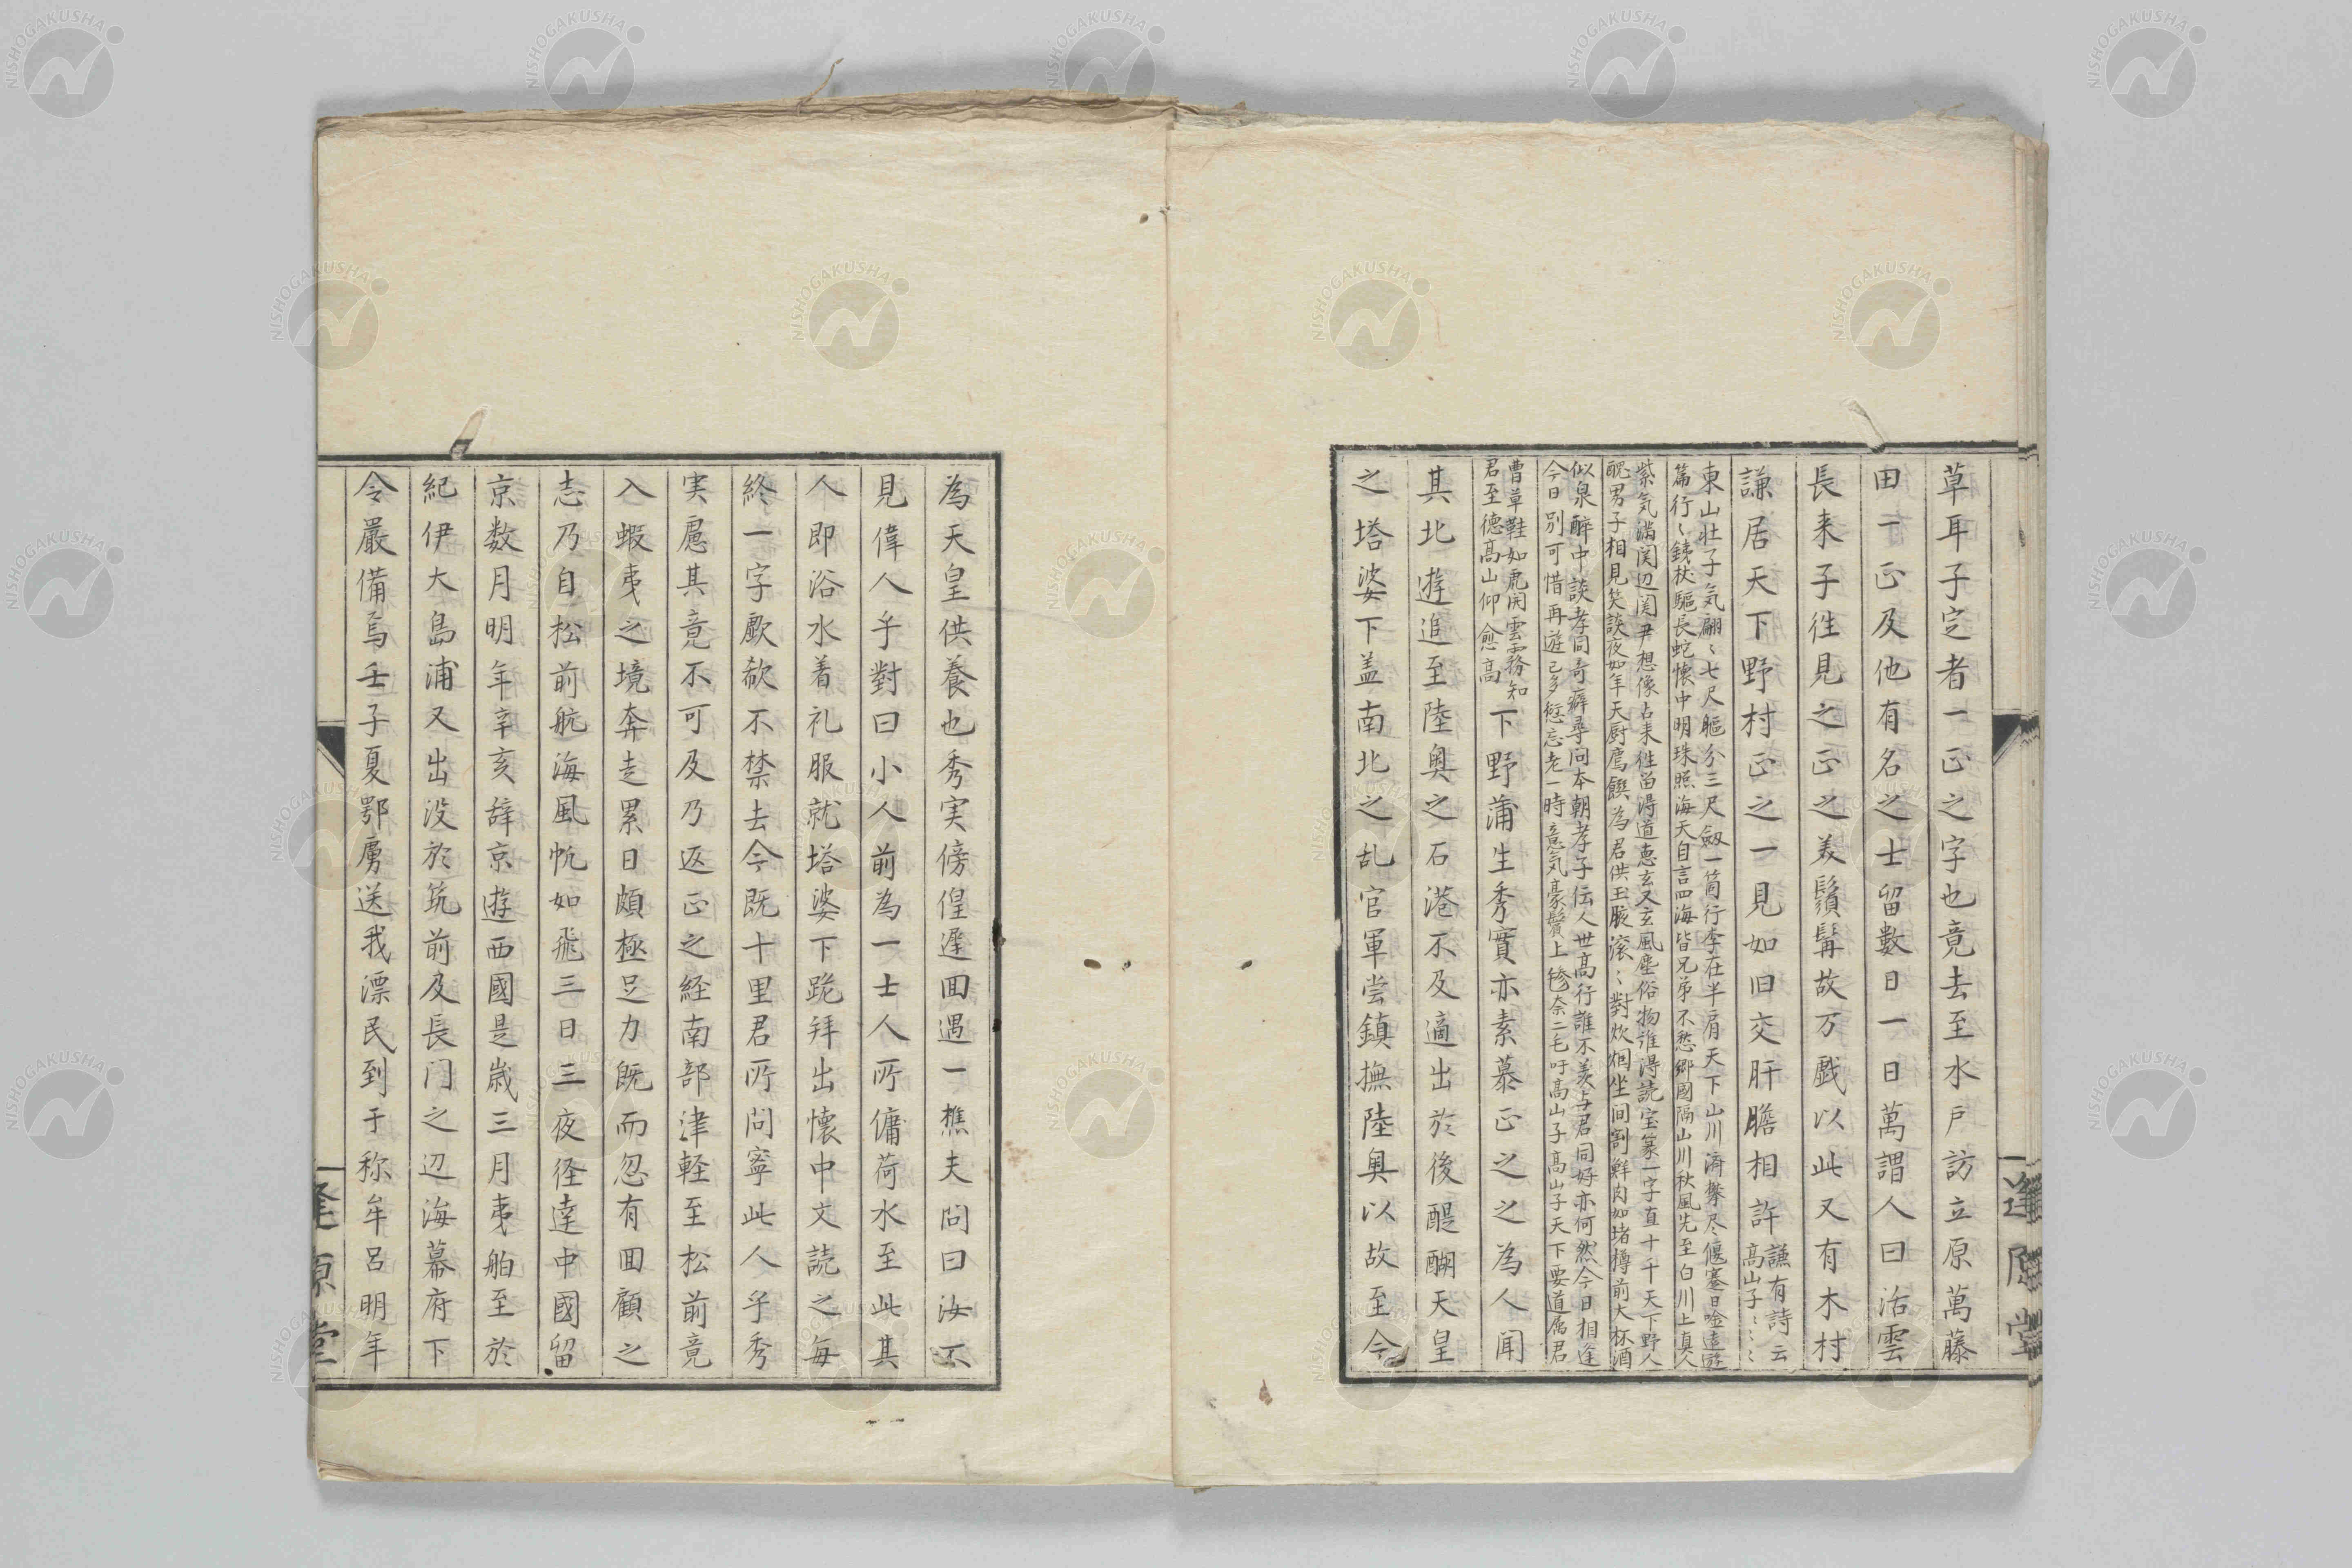 草耳子定者一正之字也竟去至水戸訪立原萬藤
田一正及他有名之士留數日一日萬謂人曰活雲
長来子徃見之正之美鬚髯故万戯以此又有木村
謙居天下野村正之一見如旧交肝膽相許謙有詩云
高山子〻〻〻
東山壮子気翩〻七尺軀分三尺劔一箇行李在半肩天下山川済攀尽偃蹇日唫遠遊
篇行〻銕杖驅長蛇懐中明珠照海天自言四海皆兄弟不愁郷國隔山川秋風先至白川上真人
紫気満関辺関尹想像古来徃留得道悳玄又玄風塵俗物誰得読宝篆一字直十千天下野人
醜男子相見笑談夜如年天厨鳫饌為君供玉豚滚〻對炊烟坐间割鮮肉如堵樽前大杯酒
似泉醉中談孝同奇癖尋问本朝孝子伝人世高行誰不羨与君同好亦何然今日相逢
今日別可惜再遊已多愆忘老一時意気豪鬢上惨奈二毛吁高山子高山子天下要道属君
曹草鞋如乕闲雲霧知
君至德高山仰愈高
下野蒲生秀實亦素慕正之之為人闻
其北遊追至陸奥之石港不及適出於後醍醐天皇
之塔婆下盖南北之乱官軍尝鎮撫陸奥以故至今
為天皇供養也秀実傍偟遲囬遇一樵夫问曰汝不
見偉人乎對曰小人前為一士人所傭荷水至此其
人即浴水着礼服就塔婆下跪拜出懷中文読之每
終一字歔欷不禁去今既十里君所问寧此人乎秀
実慮其竟不可及乃返正之経南部津軽至松前竟
入蝦夷之境奔走累日頗極足力既而忽有囬顧之
志乃自松前航海風帆如飛三日三夜径達中國留
京数月明年辛亥辞京遊西國是歳三月夷舶至於
紀伊大島浦又出没於筑前及長门之辺海幕府下
令嚴備焉壬子夏鄂虜送我漂民到于称牟呂明年
逢原堂
逢原堂